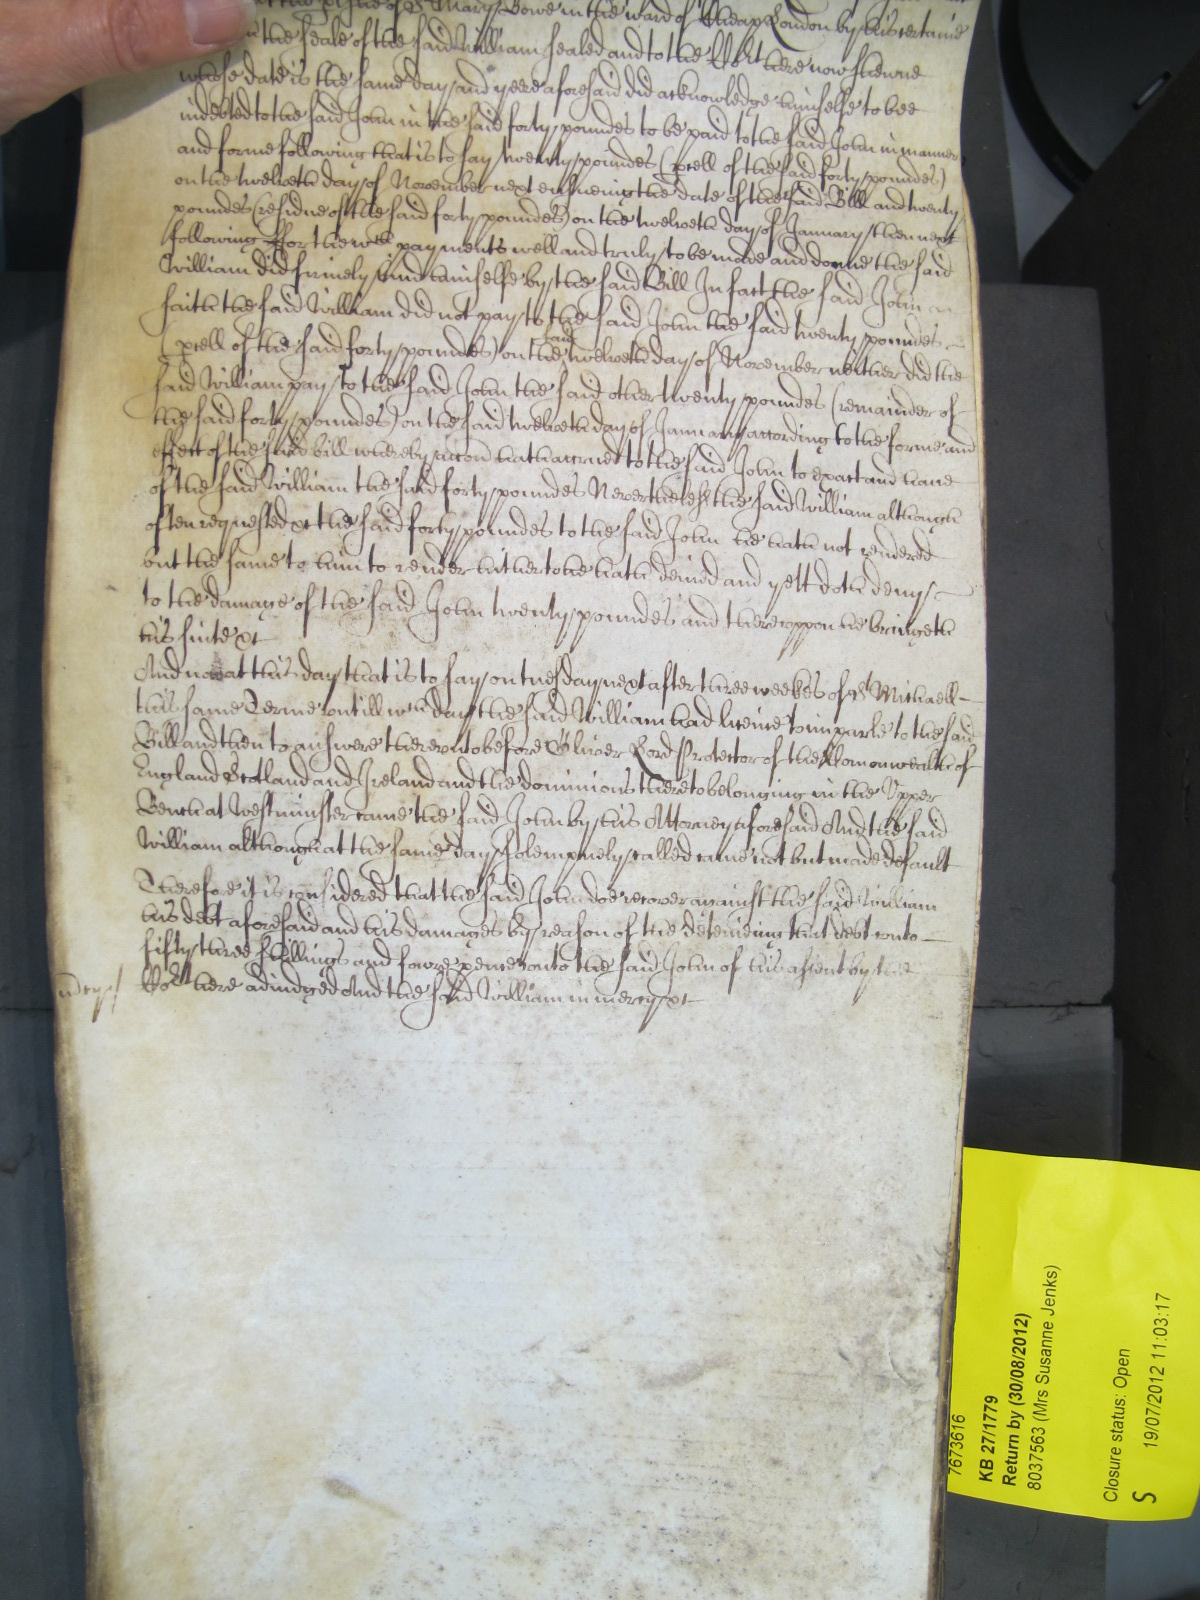 at the parishe of St Mary Bowe in the ward of Cheap London by his certaine
the seale of the said William sealed and to the Court here now shewne
whose date is the same day and yeere aforesaid did acknowledge himselfe to bee
indebted to the said John in the said forty poundes to be paid to the said John in manner
and forme following that is to say twenty poundes (pcell of the said forty poundes)
on the twelveth day of November next ensueing the date of the said Bill and twenty
poundes (residue of the said forty poundes) on the twelveth day of January then next
following ffor the wch payments well and truly to be made and donne the said
William did firmely bind himselfe by the said Bill In fact the said John
saith the said William did not pay to the said John the said twenty poundes
(pcell of the said forty poundes) on the said twelveth day of November neither did the
said William pay to the said John the said other twenty poundes (remainder of
the said forty poundes) on the said twelveth day of January according to the forme and
effect of the said bill whereby accon hath accrued to the said John to exact and have
of the said William the said forty poundes Neverthelesse the said William although
often requested &c the said forty poundes to the said John he hath not rendred
but the same to him to render hitherto he hath denied and yett doth deny
to the damage of the said John twenty poundes and thereuppon he bringeth
his suite &c
And now at this day that is to say on tuesday next after three weekes of St Michaell
this same Terme untill wch day the said William had licence to imparle to the said
Bill and then to answere thereunto before Oliver Lord Protector of the Comonwealth of
England Scotland and Ireland and the dominions thereto belonging in the Upper
Bench at Westminster came the said John by his Attorney aforesaid And the said
William although at the same day solempnely called came not but made default
Therefore it is considered that the said John doe recover against the said William
his debt aforesaid and his damages by reason of the deteineing that debt unto
fifty three shillings and foure pence unto the said John of his assent by the
mercy Court here adiudged And the said William in mercy &c
7673616
KB 27/1779
Return by (30/08/2012)
8037563 (Mrs Susanne Jenks)
Closure status: Open
S 19/07/2012 11:03:17